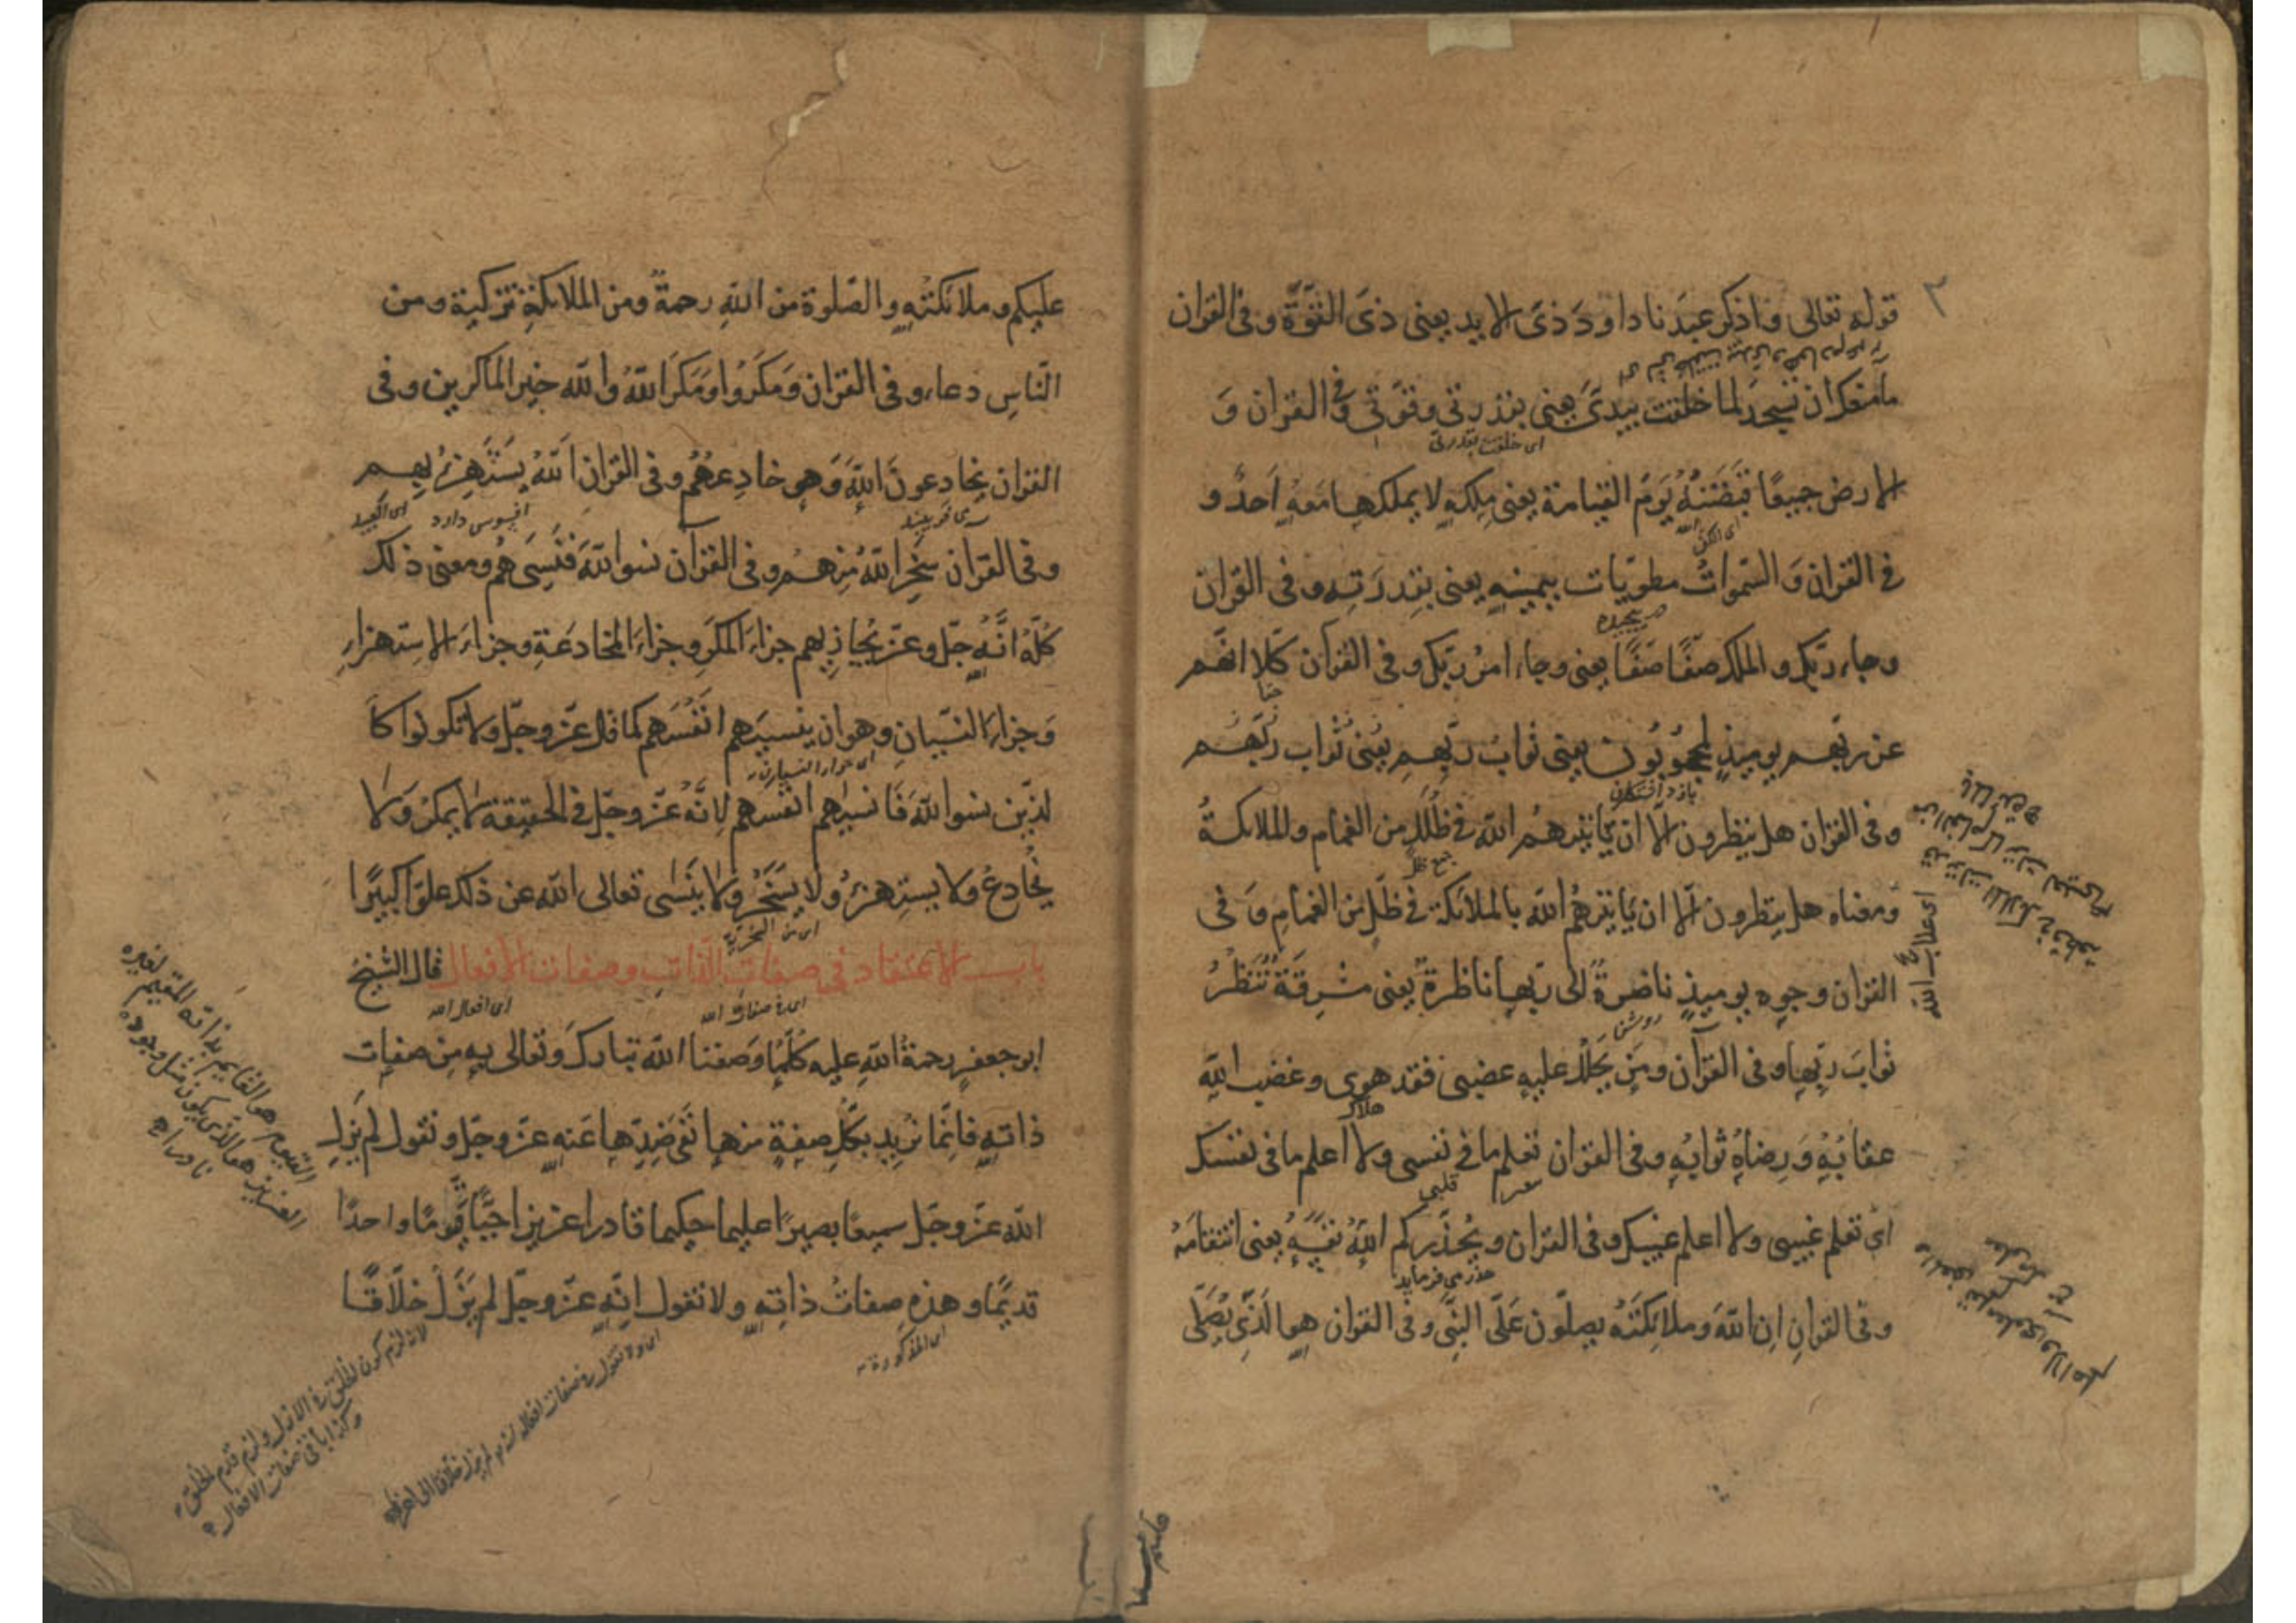 ٣
قوله تعالى واذكر عبدنا داود ذى الايد يعنى ذى القوّة وفى القران
مامنعك ان تسجد لما خلقت بيدىّ يعنى بقدرتى وقوّتى وفى القران وَ
اى خلقت بقدرتى
الارض جميعًا قبضته يَومَ القيامة يعنى مِلكه لا يملكها معه اَحدٌ و
فى القران وَ السّموات مطويّات بيمينهِ يعنى بقدرَتِه وفى القران
پيچيده
وجاء ربّك و الملك صفًّا صفًّا يعنى وجاء امرُ ربّك وفى القرآن كلّا انّهم
عن ربّهم يوميذٍ لمحجُوبُون يعنى ثوابُ ربّهِم يعنى ثواب ربّهم
وفى القران هل ينظرون الّا ان يّاتيهمُ الله فى ظُلَلٍ من الغمام والملائكةُ
جمع ظلّ
ومعناه هل ينظرون الّا ان يّاتيهمُ الله بالملائكة فى ظُلَلٍ من الغمامِ وَ فى
القران وجوه يوميذٍ ناضرةٌ الى ربّها ناظرةٌ يعنى مشرِقَةٌ تَنظُرُ
روشن
ثوابَ ربّها وفى القرآن ومَن يَحلُل عليهِ غضبى فقد هوى وغضب اللهِ
هلاك
عقابُهُ وَ رِضاهُ ثوابُهُ وفى القران تعلم ما فى نفسى ولا اعلم ما فى نفسك
قلبى
اىْ تعلم غيبى ولا اعلم غيبك وفى القران ويُحذّركم اللهُ نفسَهُ يعنى انتقامَهُ
حذر مى فرمايد
وفى القرانِ اِن اللهَ وملائكتَهُ يصلّون عَلَى النّبىّ وفى القران هو الَّذى يُصَلّى
عليكم وملائكتُه والصّلوة من اللهِ رحمةٌ ومن الملائكةِ تزكية ومن
النّاسِ دعاء وفى القران وَمكَرُوا وَمَكرَ اللهُ والله خير الماكرين وفى
القران يخادعونَ اللهَ وَهو خادِعهُم وفى القرانِ اَللهُ يَستَهزِئُ بِهِم
افسوس دارد
وفى القران سَخِرَ اللهُ مِنهم وفى القرآن نسوا اللهَ فنَسِىَهُم ومعنى ذلك
كُلّهُ انَّهُ جلّ وعزّ يُجازيهم جزاءَ المكرِ وجزاءَ المخادَعَةِ وجزاءَ الاستهزاءِ
وَجزاءَ النّسيانِ وهو ان ينسيَهم انفسَهم كما قال عزّ وجلّ ولا تكونوا كا
اى جزاء النسيان
لذّين نسوا اللهَ فَانسيٰهم انفسهم لِانَّهُ عزّ وجلّ فى الحقيقة لا يمكرُ وَ لا
يُخادعُ ولا يستهزئُ ولا يَسخَرُ ولا يَنسٰى تعالى الله عن ذلك علوّا كبيرًا
باب الاعتقاد فى صفات الذّات وصفات الافعال قال الشّيخُ
اى فى صفات الله
اى افعال الله
ابو جعفرٍ رحمةُ اللهِ عليه كلّما وَصفنا الله تباركَ وتعالى بِهِ مِن صفات
ذاتِهِ فانّما نُريد بكلِّ صِفةٍ منها نَفىَ ضِدّها عَنه عزّ وجلّ ونقول لم يَزلِ
الله عزّ وجلّ سميعًا بصيرًا عليما حكيما قادرا عزيزا حيًّا قيّومًا واحدًا
قديمًا وهذهِ صِفاتُ ذاتِهِ ولا نقول انّه عزّ وجلّ لم يَزَلْ خلّاقًا
اى المذكورة
القيوم هو القايم بذاته المقيم لغيره
العزيز هو الذى يكون مثل وجوده
نادرا
وكذا باقى صفات الافعال